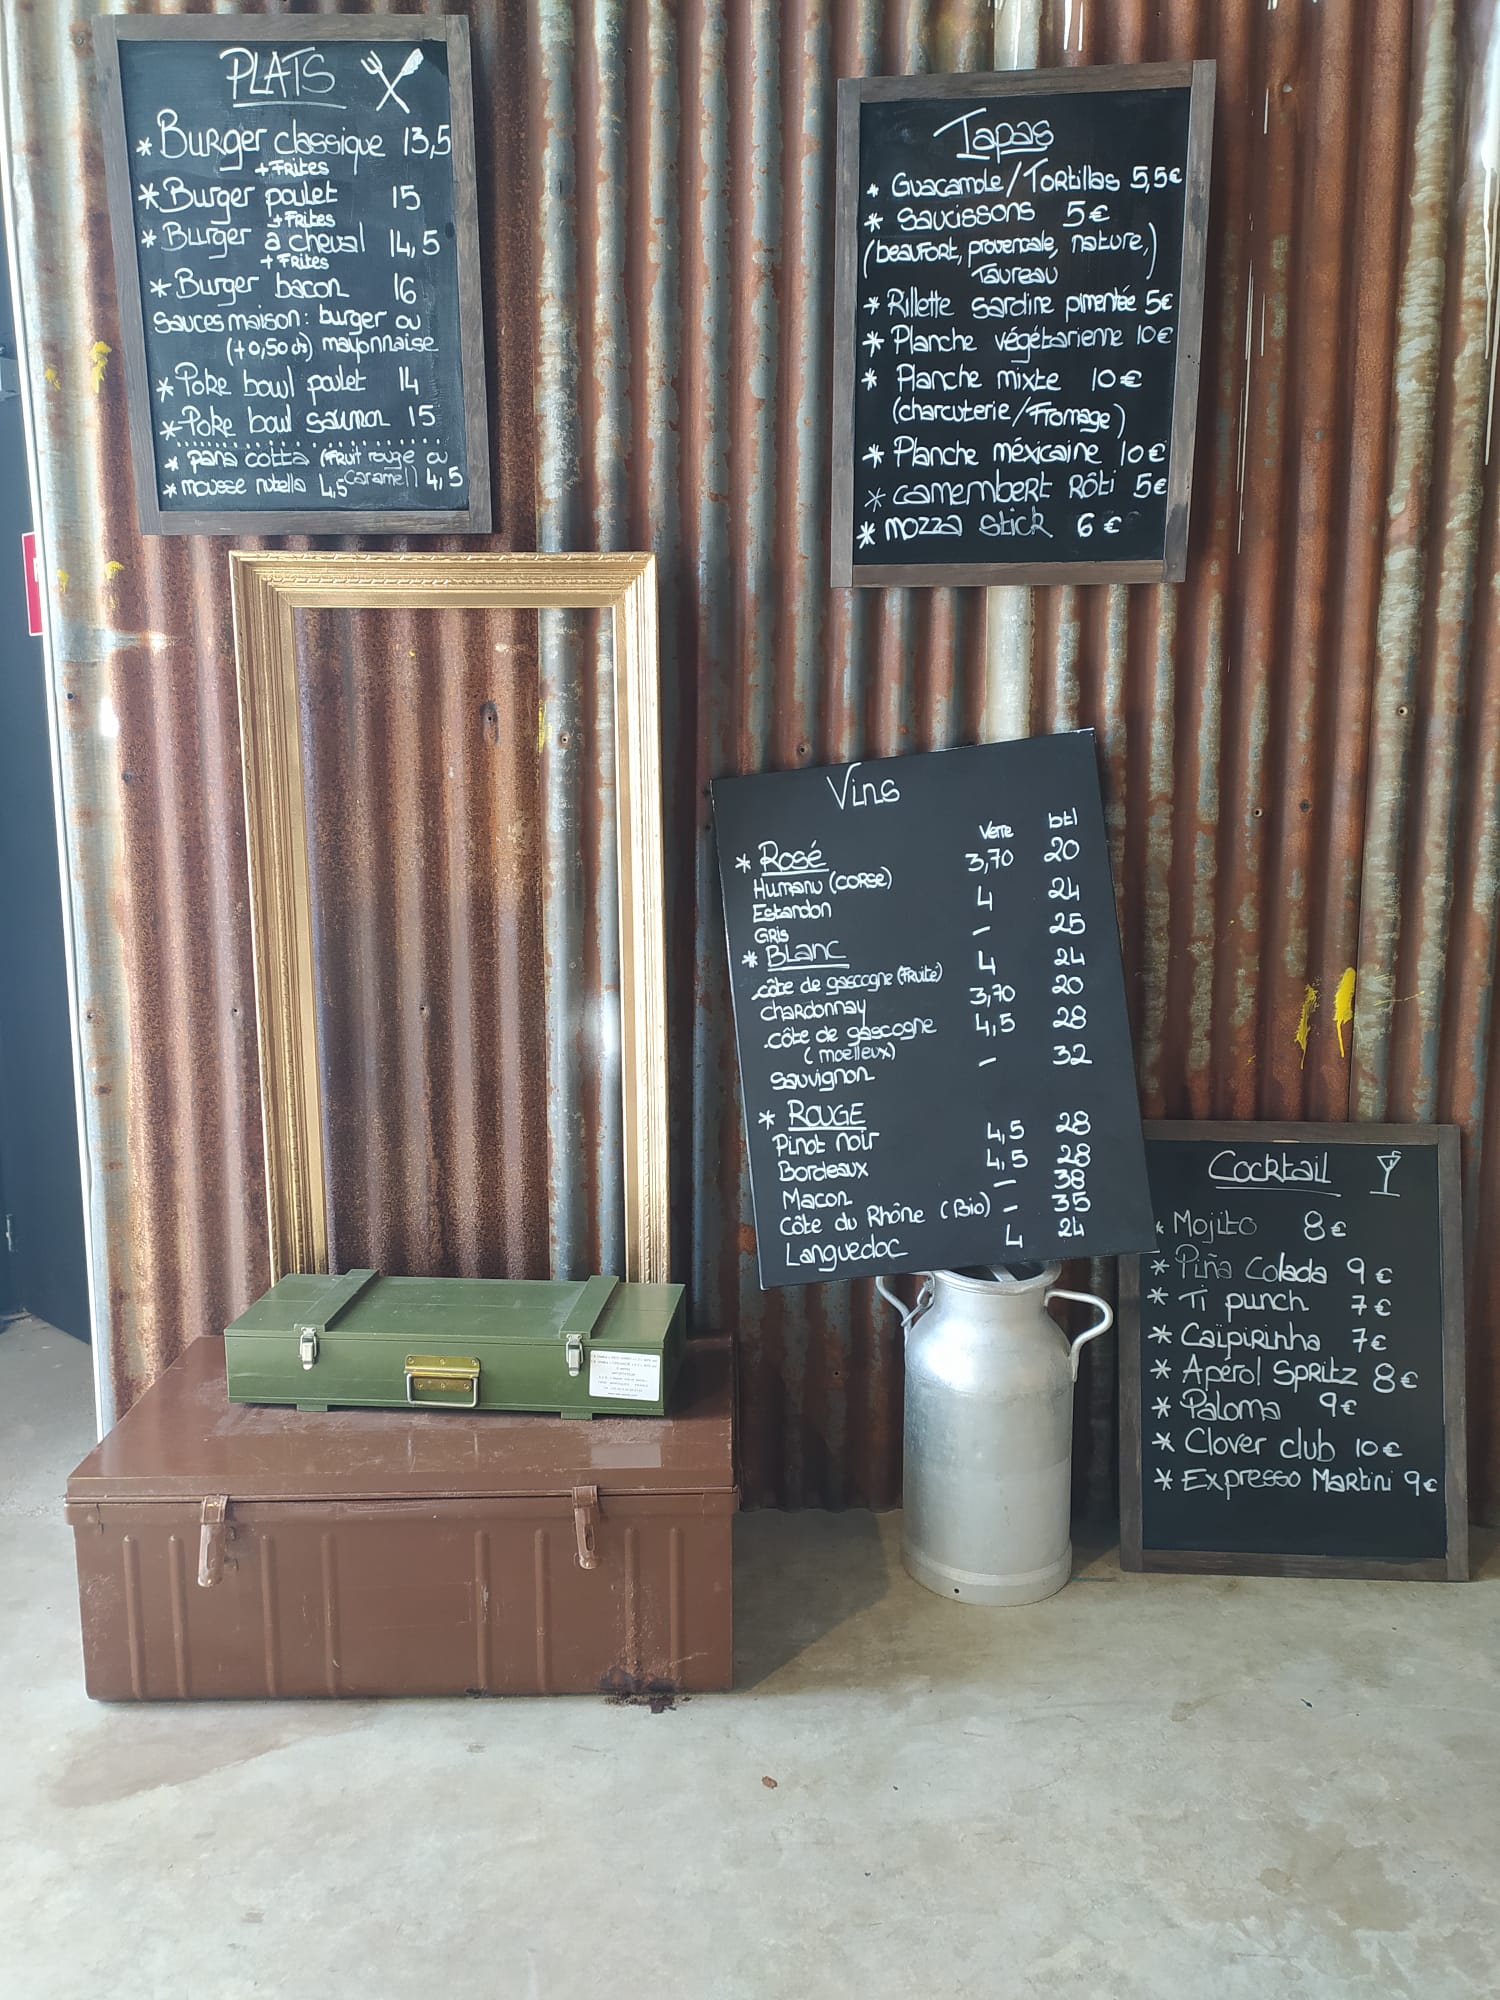 PLATS
* Burger classique 13,5
+ Frites
* Burger poulet 15
+ Frites
* Burger à cheval 14,5
+ Frites
* Burger bacon 16
Sauces maison : burger ou
(+0,50 cts) mayonnaise
* Poke bowl poulet 14
* Poke bowl saumon 15
* pana cotta (Fruit rouge ou
caramel) 4,5
* mousse nutella 4,5
Tapas
* Guacamole/Tortillas 5,5€
* Saucissons 5€
(beaufort, provençale, nature,)
Taureau
* Rillette sardine pimentée 5€
* Planche végétarienne 10€
* Planche mixte 10€
(charcuterie/Fromage)
* Planche méxicaine 10€
* camembert Rôti 5€
* mozza stick 6€
Vins
Verre btl
* Rosé 3,70 20
Humanu (corse) 4 24
Estandon - 25
Gris
* BLANC 4 24
côte de gascogne (Fruité) 3,70 20
chardonnay 4,5 28
côte de gascogne
(moelleux) - 32
Sauvignon
* ROUGE
Pinot noir 4,5 28
Bordeaux 4,5 28
Macon - 38
Côte du Rhône (Bio) - 35
Languedoc 4 24
Cocktail
* Mojito 8€
* Piña Colada 9€
* Ti punch 7€
* Caïpirinha 7€
* Apérol Spritz 8€
* Paloma 9€
* Clover club 10€
* Expresso Martini 9€